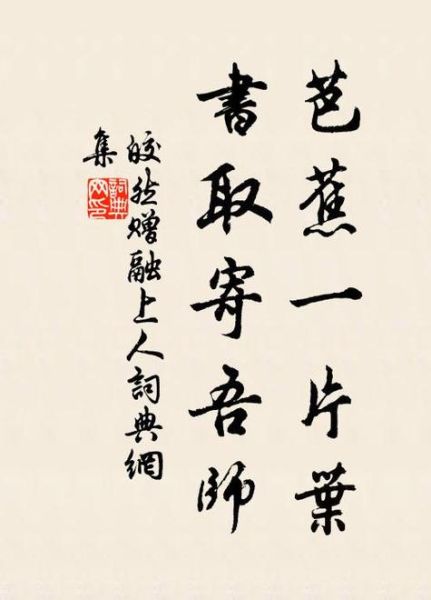 芭蕉一片葉
書取寄吾師
皎然贈融上人詞典網
集
詞典
网印